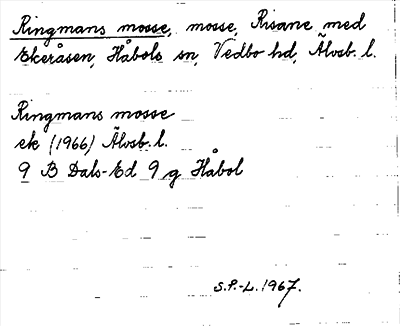 Ringmans mosse, mosse, Risane med
Ekeråsen, Håbols sn, Vedbo hd, Älvsb. l.
Ringmans mosse
ek (1966) Älvsb. l.
9 B Dals-Ed 9 g Håbol
S.P.-L. 1967.